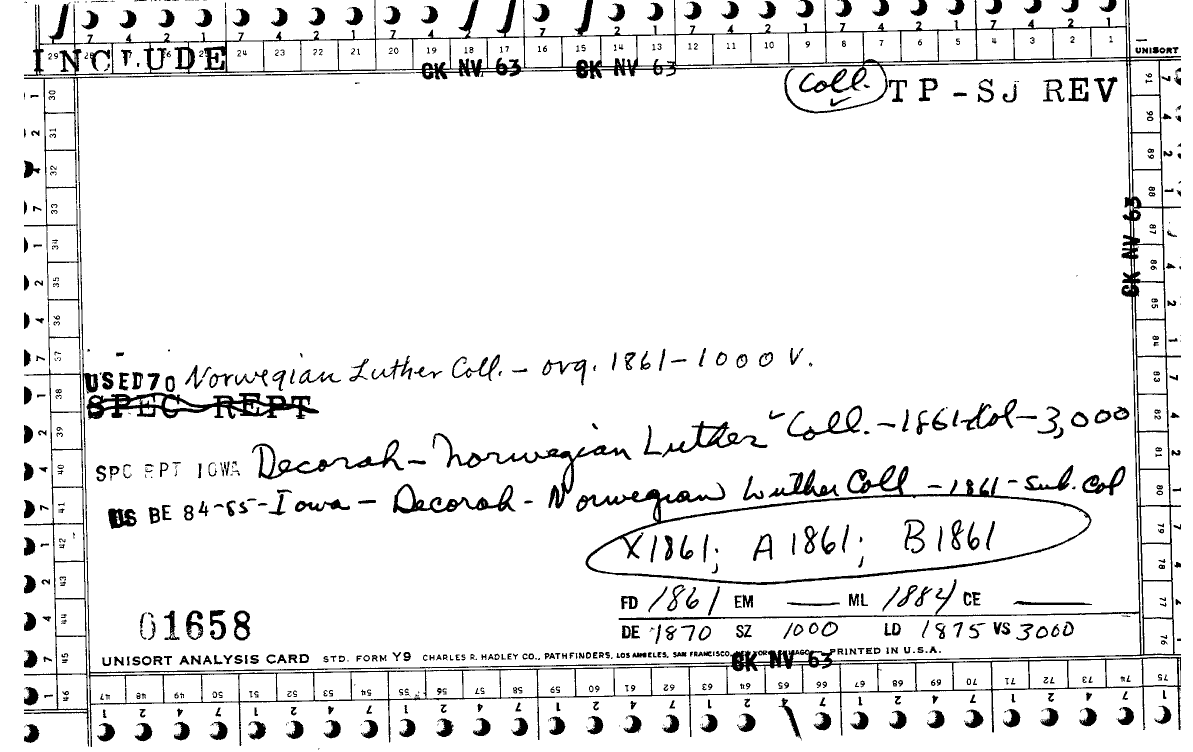 7 4 2 1 7 4 2 1 7 4 2 1 7 4 2 1 7 4 2 1 7 4 2 1
24 23 22 21 20 19 18 17 16 15 14 13 12 11 10 9 8 7 6 5 4 3 2 1
UNISORT
INCLUDE
CK NV 63 CK NV 63
Coll. TP-SJ REV
1 30
2 31
4 32
7 33
1 34
2 35
4 36
7 37
1 38
2 39
4 40
7 41
1 42
2 43
4 44
7 45
1 46
91
90
89
88
87
86
85
84
83
82
81
80
79
78
77
76
CK NV 63
USED70 Norwegian Luther Coll. - org. 1861-1000 V.
SPEC REPT
SPC RPT IOWA Decorah - Norwegian Luther Coll. - 1861-Col - 3,000
US BE 84-85 - Iowa - Decorah - Norwegian Luther Coll - 1861 - Sub. Col
X1861; A1861; B1861
FD 1861 EM — ML 1884 CE —
DE 1870 SZ 1000 LD 1875 VS 3000
01658
UNISORT ANALYSIS CARD STD. FORM Y9 CHARLES R. HADLEY CO., PATHFINDERS, LOS ANGELES, SAN FRANCISCO, PRINTED IN U.S.A.
CK NV 63
47 48 49 50 51 52 53 54 55 56 57 58 59 60 61 62 63 64 65 66 67 68 69 70 71 72 73 74 75
1 2 4 7 1 2 4 7 1 2 4 7 1 2 4 7 1 2 4 7 1 2 4 7 1 2 4 7